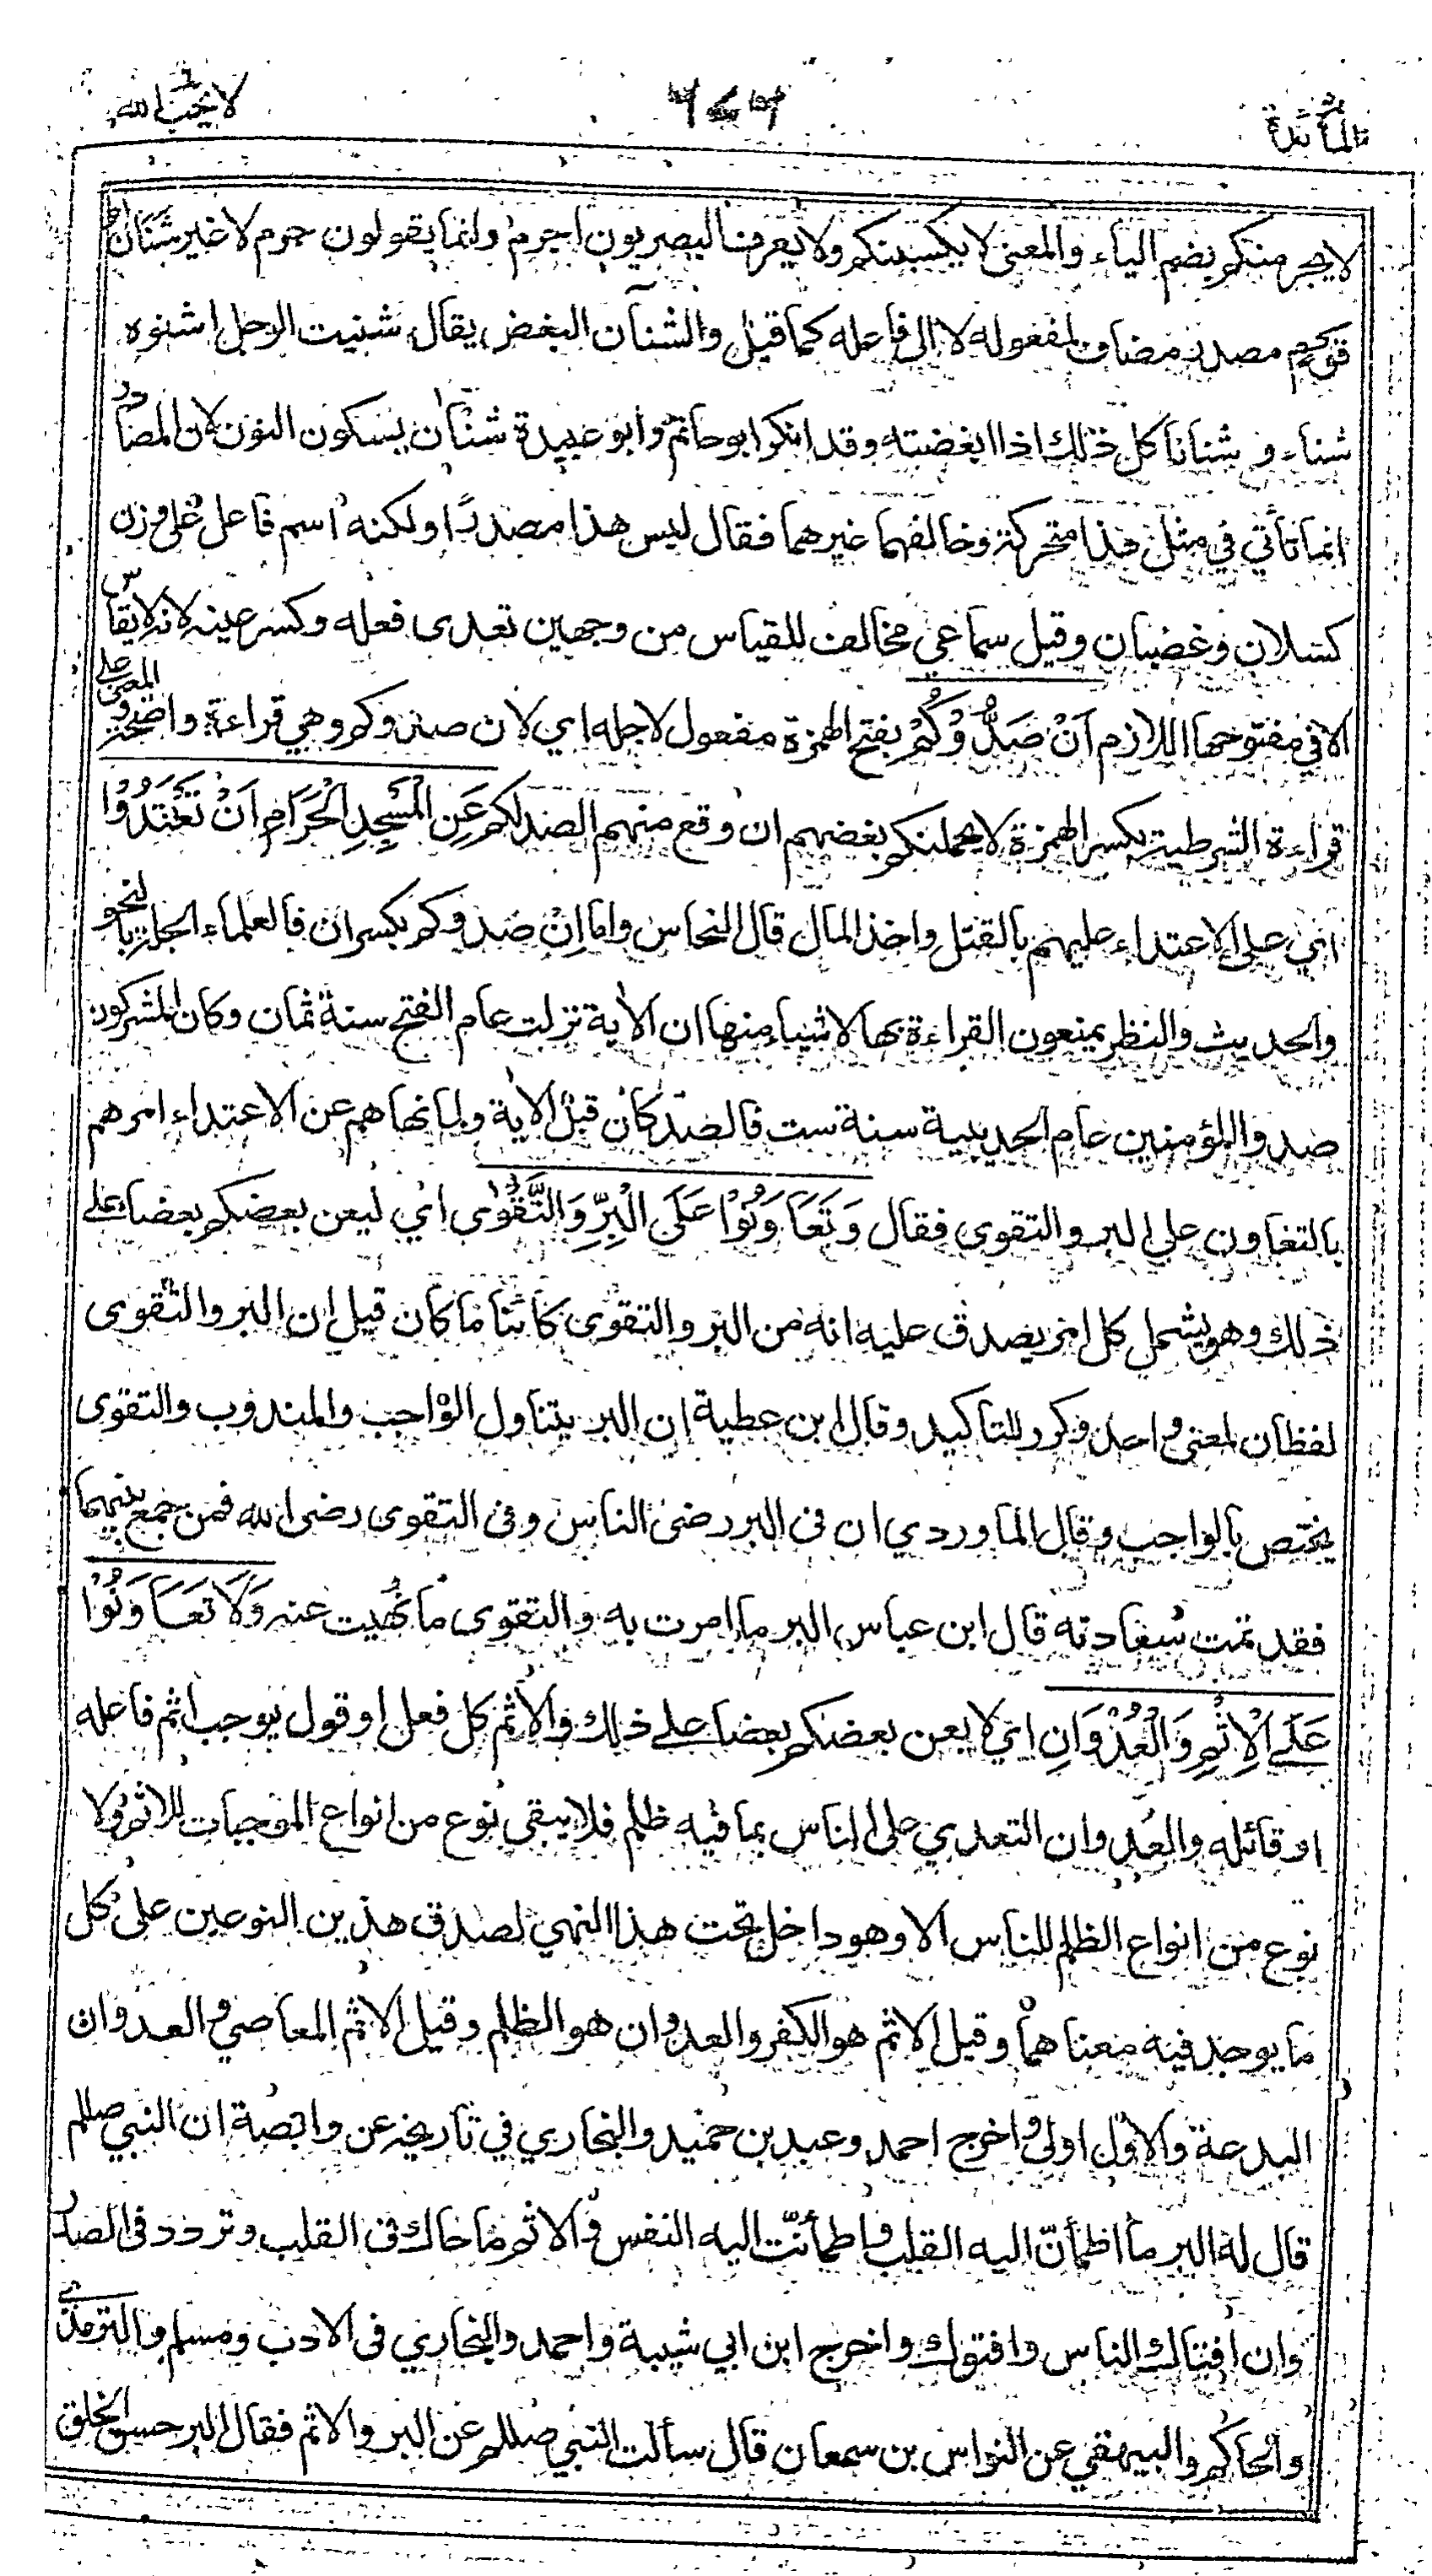 المائدة
لا يحب الله
لا يجرمنكم بضم الياء والمعنى لا يكسبنكم ولا يعرف البصريون اجرم وانما يقولون جرم لا غير شَنَاٰنُ
قَوْمٍ مصدر مضاف لمفعوله لا الى فاعله كما قيل والشنآن البغض يقال شنيت الرجل اشنوه
شناء و شنانا كل ذلك اذا ابغضته وقد انكر ابو حاتم وابو عبيدة شنْاٰن بسكون النون لان المصادر
انما تأتي في مثل هذا متحركة وخالفهما غيرهما فقال ليس هذا مصدرًا ولكنه اسم فاعل على وزن
كسلان وغضبان وقيل سماعي مخالف للقياس من وجهين تعدى فعله وكسر عينه لانه لا يقاس
الا في مفتوحها اللازم اَنْ صَدُّوْكُمْ بفتح الهمزة مفعول لاجله اي لان صدوكم وهي قراءة واضحة والمعنى على
قراءة الشرطية بكسر الهمزة لا يحملنكم بغضهم ان وقع منهم الصد لكم عَنِ الْمَسْجِدِ الْحَرَامِ اَنْ تَعْتَدُوْا
اي على الاعتداء عليهم بالقتل واخذ المال قال النحاس واما اِنْ صدوكم بكسر ان فالعلماء الجلة بالنحو
والحديث والنظر يمنعون القراءة بها لاشياء منها ان الاٰية نزلت عام الفتح سنة ثمان وكان المشركون
صدوا المؤمنين عام الحديبية سنة ست فالصد كان قبل الاٰية ولما نهاهم عن الاعتداء امرهم
بالتعاون على البر والتقوى فقال وَتَعَاوَنُوْا عَلَى الْبِرِّ وَالتَّقْوٰى اي ليعن بعضكم بعضا على
ذلك وهو يشمل كل امر يصدق عليه انه من البر والتقوى كائنا ما كان قيل ان البر والتقوى
لفظان لمعنى واحد وكرر للتاكيد وقال ابن عطية ان البر يتناول الواجب والمندوب والتقوى
يختص بالواجب وقال الماوردي ان فى البر رضى الناس وفى التقوى رضى الله فمن جمع بينهما
فقد تمت سعادته قال ابن عباس البر ما امرت به والتقوى ما نُهيت عنه وَلَا تَعَاوَنُوْا
عَلَى الْاِثْمِ وَالْعُدْوَانِ اي لا يعن بعضكم بعضا على ذلك والاثم كل فعل او قول يوجب اثم فاعله
او قائله والعُدوان التعدي على الناس بما فيه ظلم فلا يبقى نوع من انواع الموجبات للاثم ولا
نوع من انواع الظلم للناس الا وهو داخل تحت هذا النهي لصدق هذين النوعين على كل
ما يوجد فيه معناهما وقيل الاثم هو الكفر والعدوان هو الظلم وقيل الاثم المعاصي والعدوان
البدعة والاول اولى واخرج احمد وعبد بن حميد والبخاري في تاريخه عن وابصة ان النبي صللم
قال له البر ما اطمأنّ اليه القلب واطمأنّت اليه النفس والاثم ما حاك فى القلب وتردد فى الصدر
وان افتاك الناس وافتوك واخرج ابن ابي شيبة واحمد والبخاري فى الادب ومسلم والترمذي
والحاكم والبيهقي عن النواس بن سمعان قال سألت النبي صللم عن البر والاثم فقال البر حسن الخلق